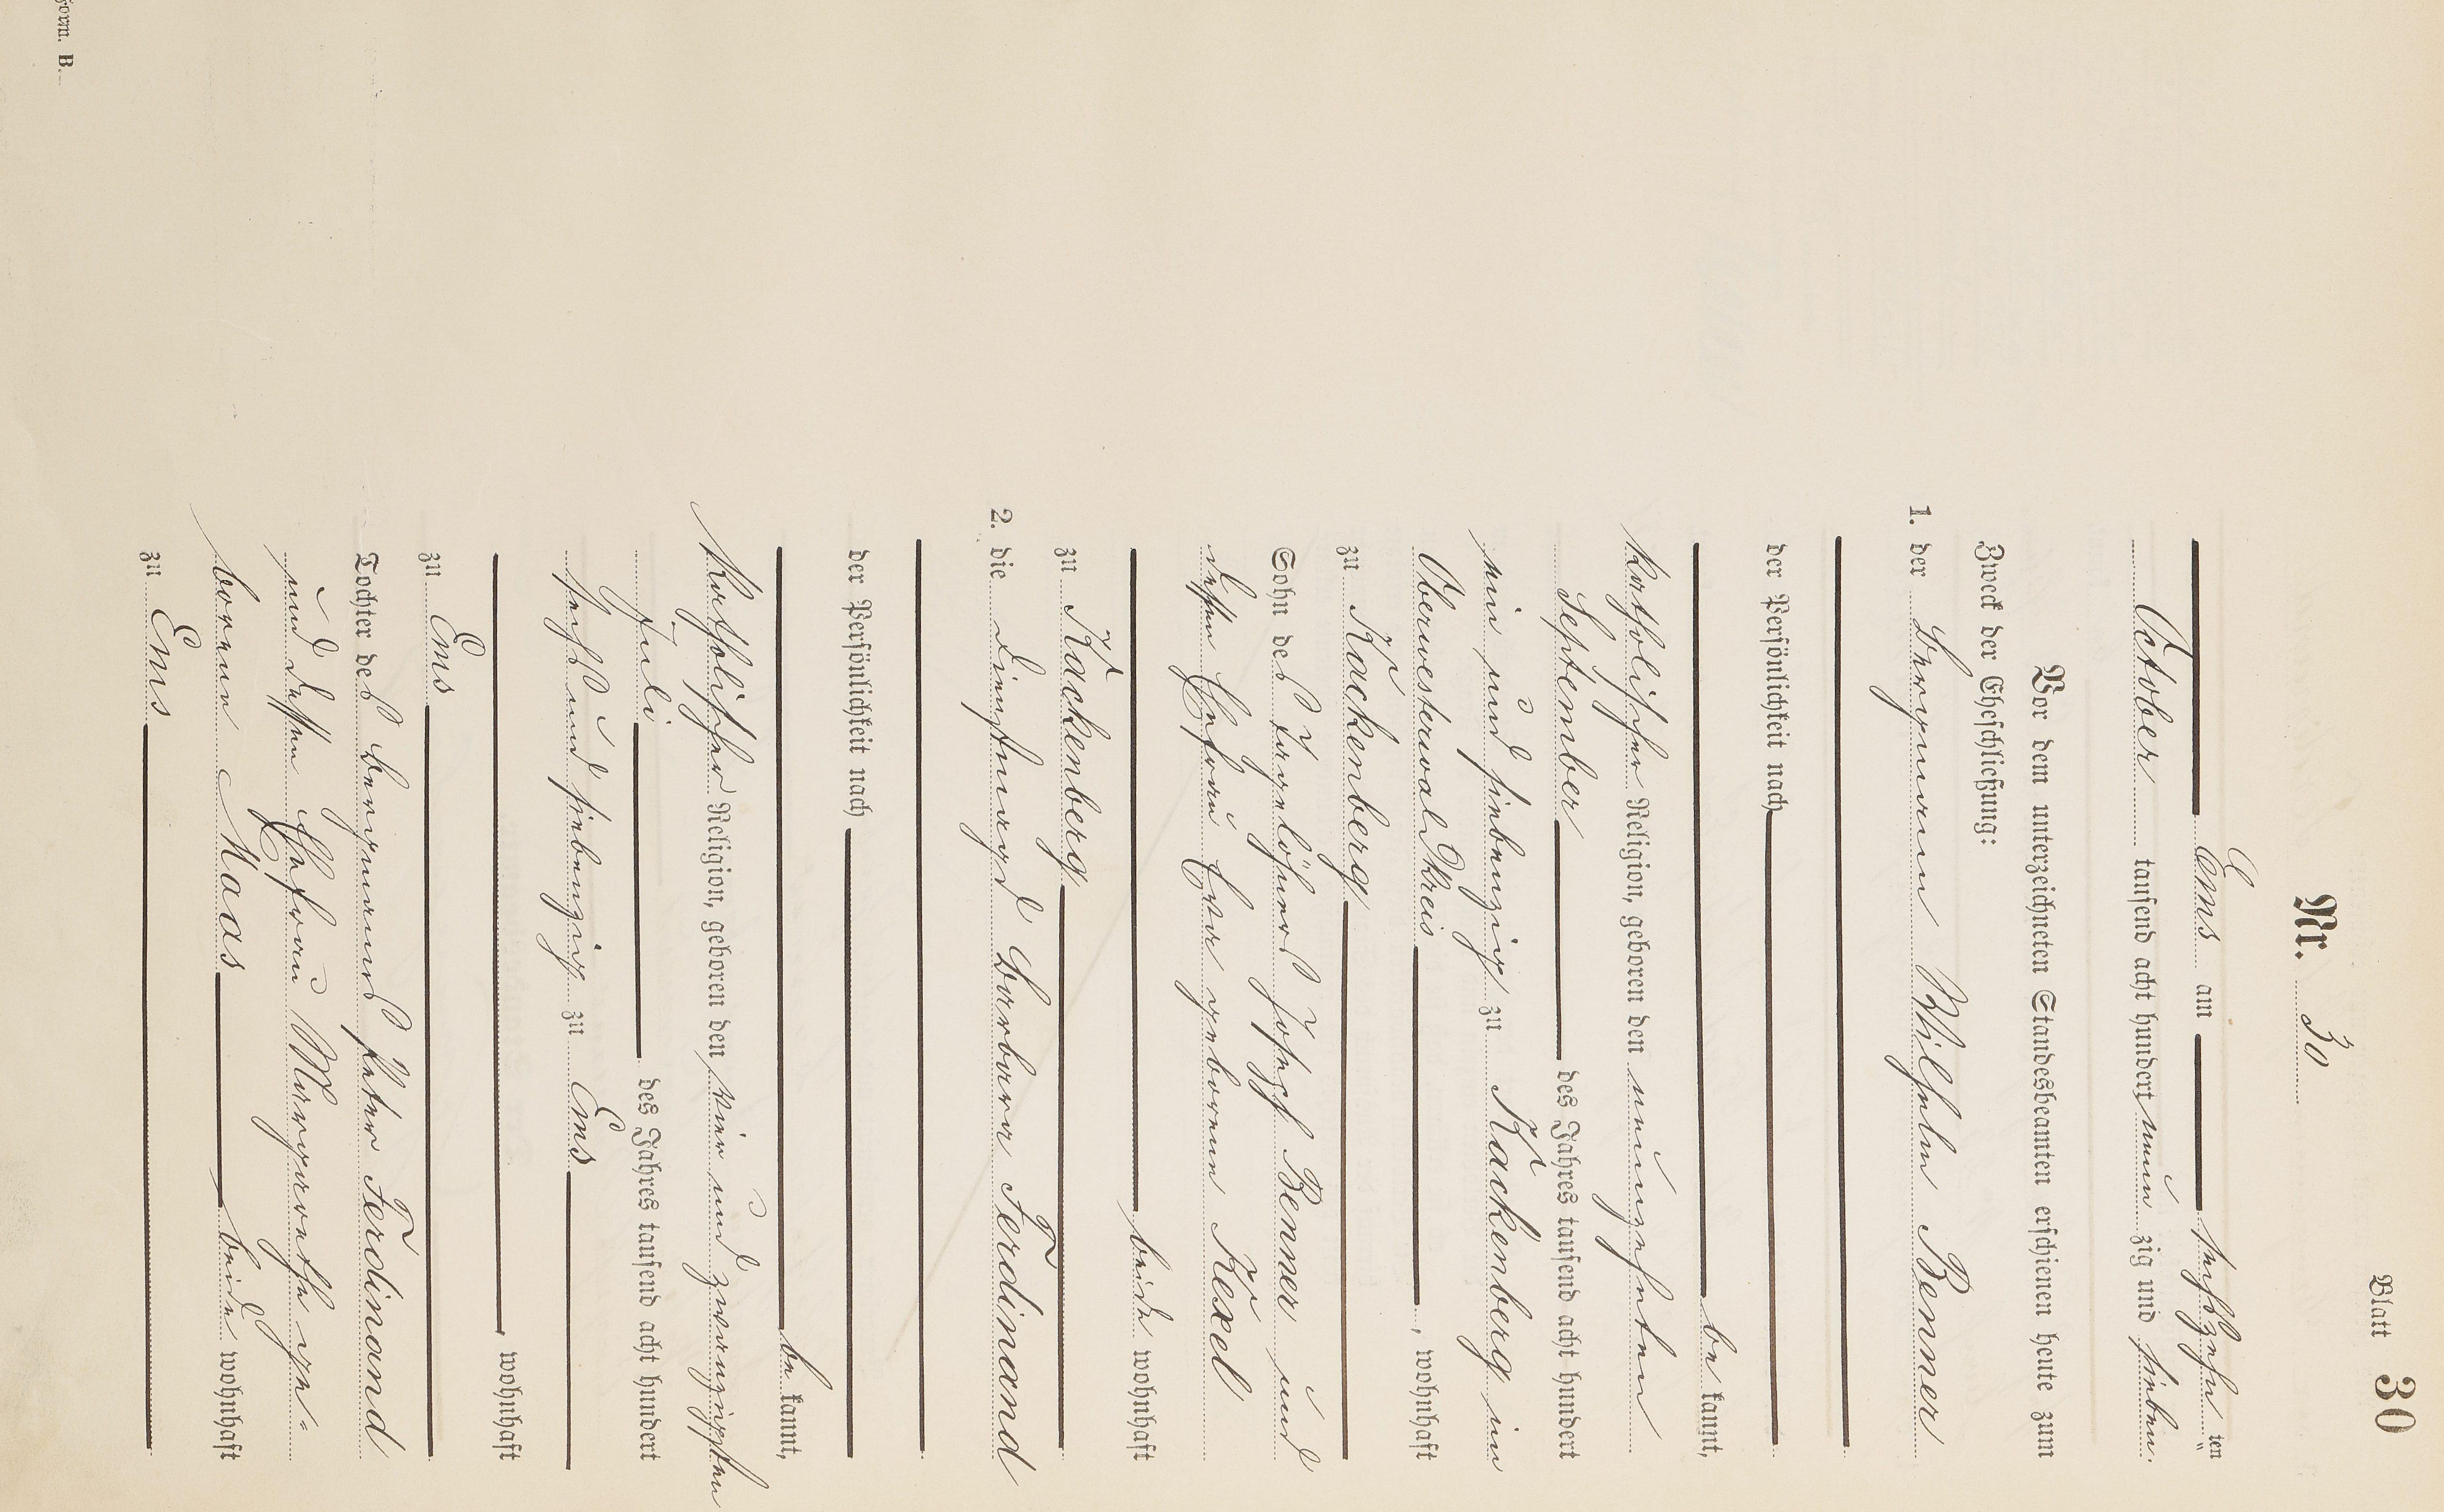 Blatt 30
Nr. 30
Ems am sechszehn ten
October tausend acht hundert neun zig und sieben.
Vor dem unterzeichneten Standesbeamten erschienen heute zum
Zweck der Eheschließung:
1. der Bergmann Wilhelm Benner
der Persönlichkeit nach
be kannt,
katholischer Religion, geboren den neunzehnten
September des Jahres tausend acht hundert
ein und siebenzig zu Kackenberg im
Oberwesterwald Kreis, wohnhaft
zu Kackenberg
Sohn des Tagelöhners Joseph Benner und
dessen Ehefrau Eva geborene Kexel
beide wohnhaft
zu Kackenberg
2. die Dienstmagd Barbara Ferdinand
der Persönlichkeit nach
be kannt,
katholischer Religion, geboren den vier und zwanzigsten
Juli des Jahres tausend acht hundert
sechs und siebenzig zu Ems
, wohnhaft
zu Ems
Tochter des Bergmanns Peter Ferdinand
und dessen Ehefrau Margarethe ge-
borene Maas beide wohnhaft
zu Ems
Form. B.